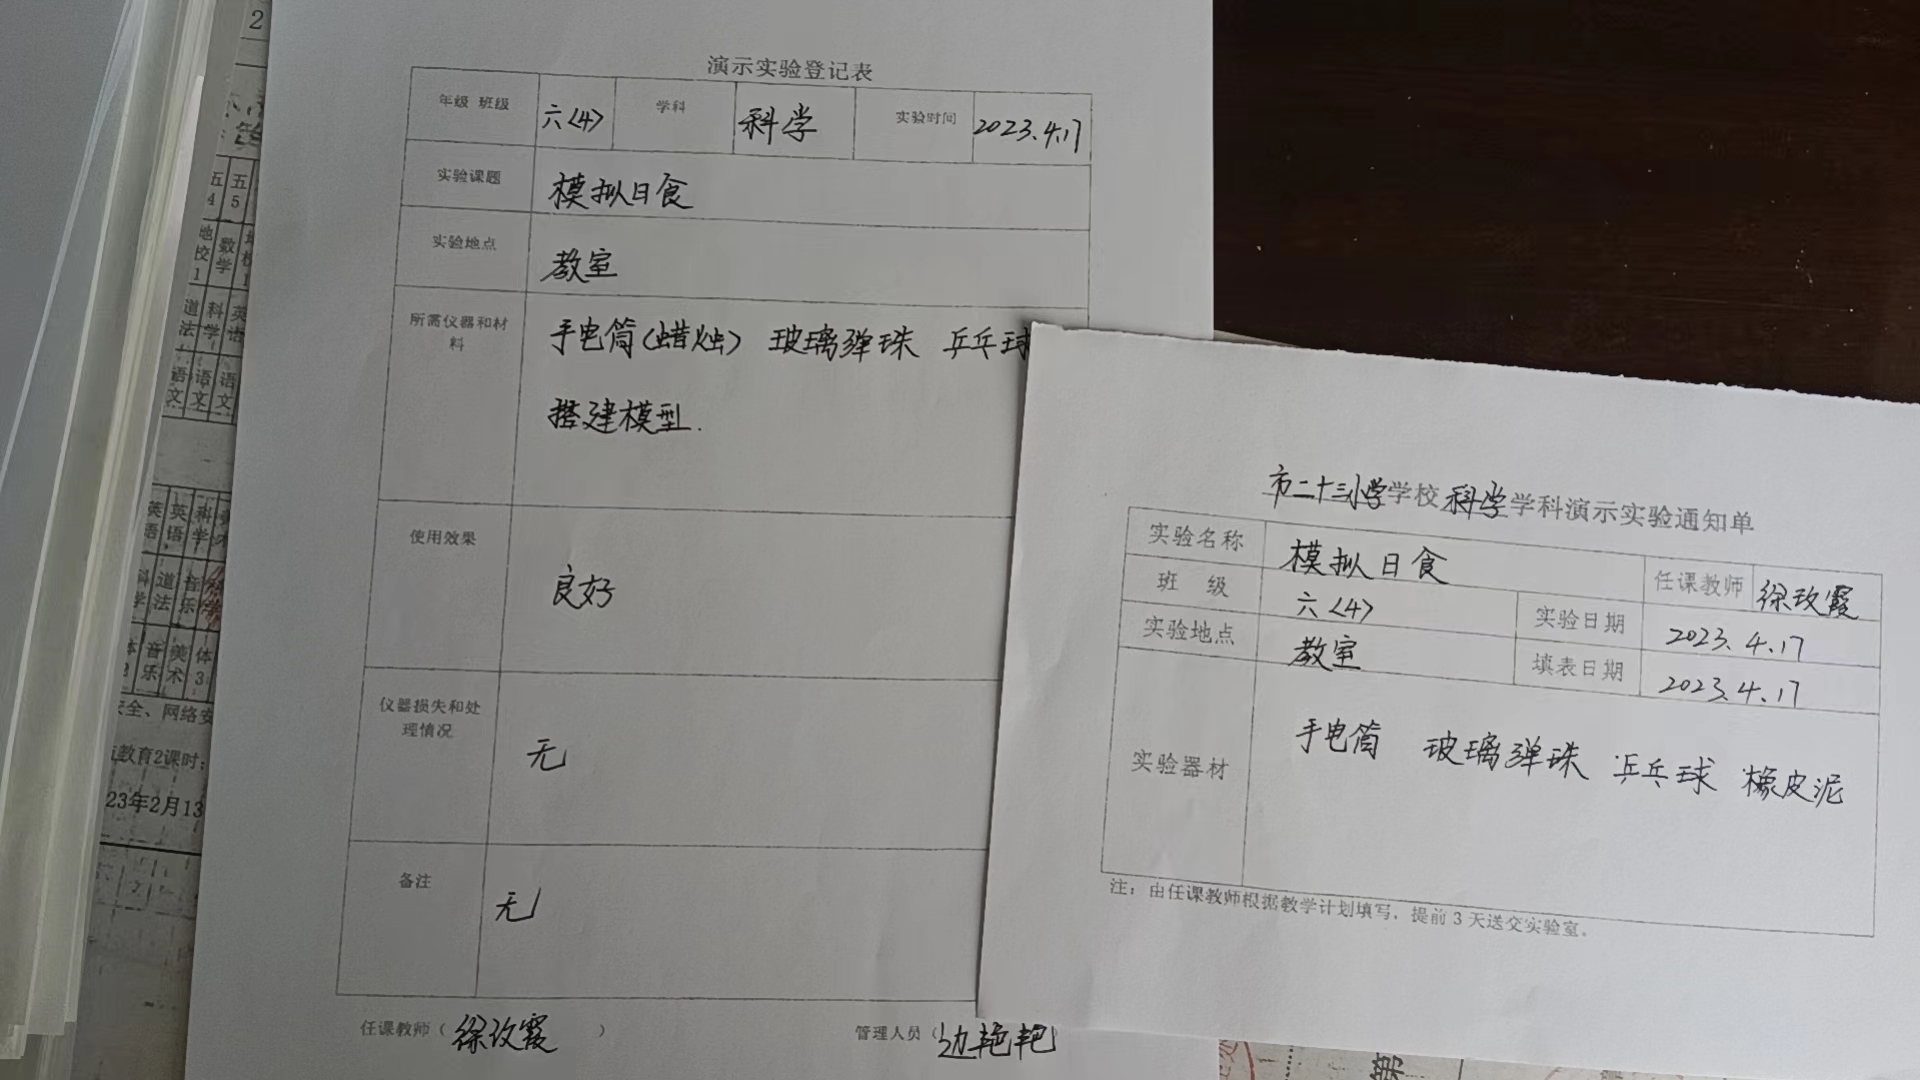 演示实验登记表
年级 班级 六(4) 学科 科学 实验时间 2023.4.17
实验课题 模拟日食
实验地点 教室
所需仪器和材料 手电筒(蜡烛) 玻璃弹珠 乒乓球
搭建模型.
使用效果 良好
仪器损失和处理情况 无
备注 无
任课教师( 徐玫霞 ) 管理人员( 边艳艳
市二十三小学学校科学学科演示实验通知单
实验名称 模拟日食 任课教师 徐玫霞
班 级 六(4) 实验日期 2023.4.17
实验地点 教室 填表日期 2023.4.17
实验器材 手电筒 玻璃弹珠 乒乓球 橡皮泥
注：由任课教师根据教学计划填写，提前3天送交实验室。
五 五
4 5
地校1 数学
道法 科学 英语
语文 语文 语文
英语 英语 科学
道法 音乐
音乐 美术 体3
全、网络安
教育2课时：
23年2月13
第